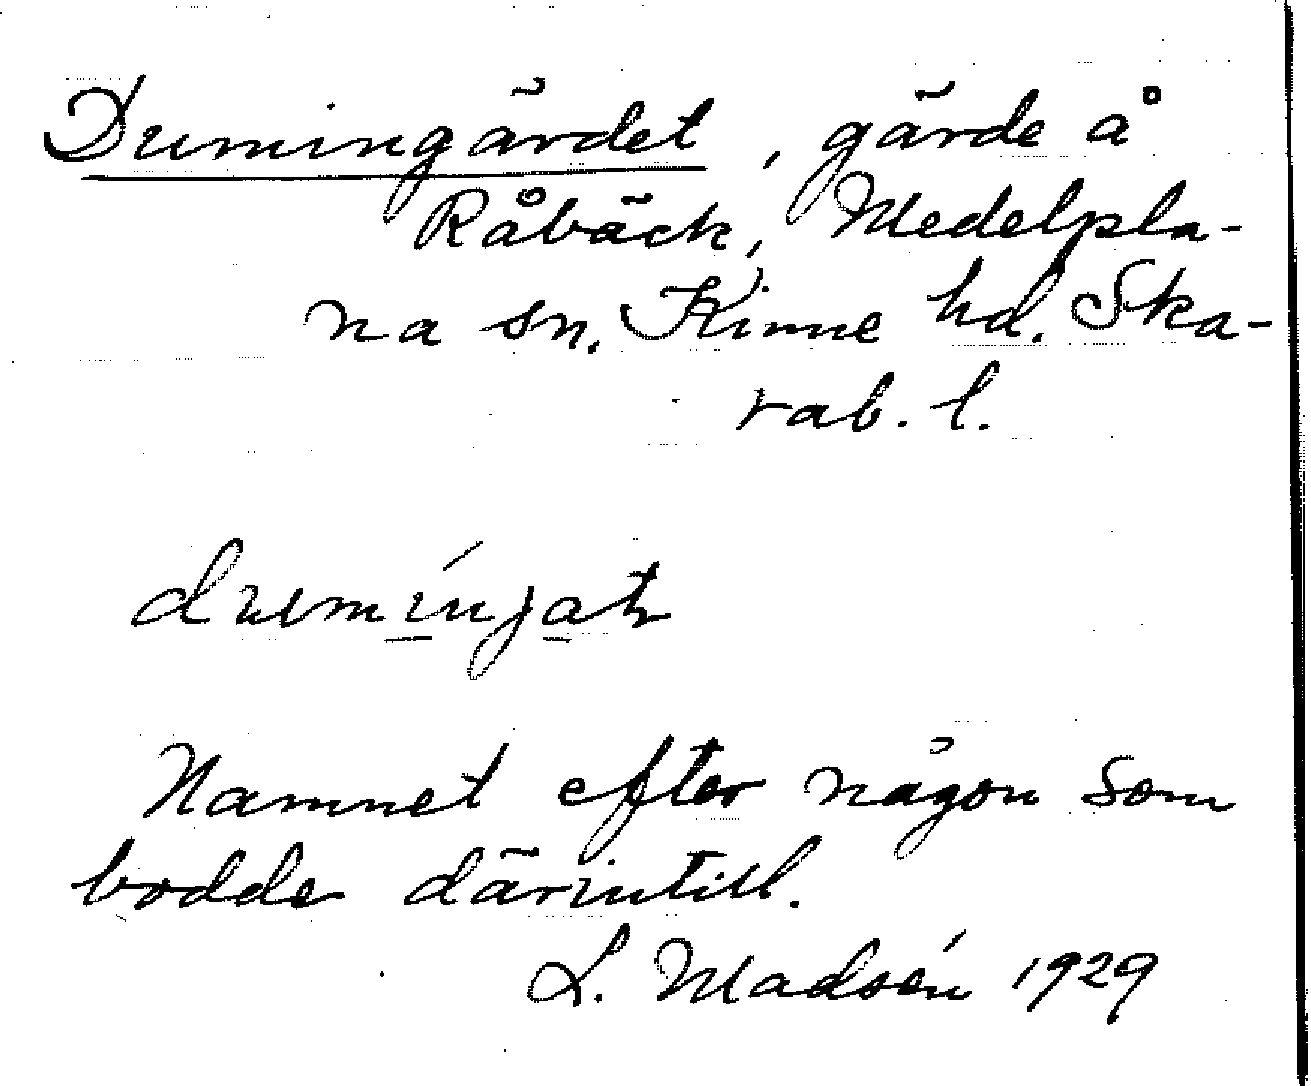 Dumingärdet, gärde å
Råbäck, Medelpla-
na sn. Kinne hd. Ska-
rab. l.
dumínjat
Namnet efter någon som
bodde därintill.
L. Madsén 1929